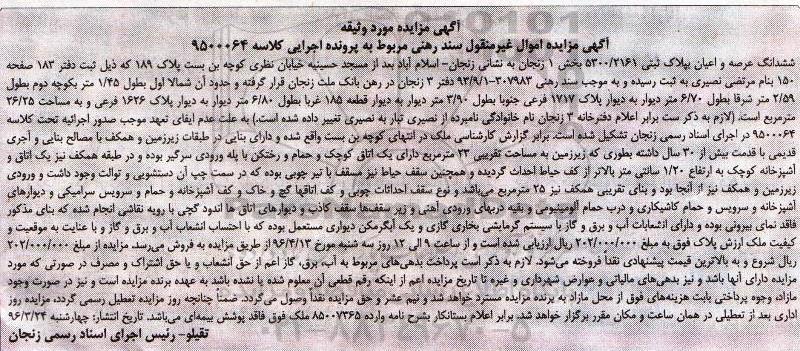 آگهی مزایده مورد وثیقه
آگهی مزایده اموال غیرمنقول سند رهنی مربوط به پرونده اجرایی کلاسه ۹۵۰۰۰۶۴
ششدانگ عرصه و اعیان بپلاک ثبتی ۵۳۰۰/۲۱۶۱ بخش ۱ زنجان به نشانی زنجان- اسلام آباد بعد از مسجد حسینیه خیابان نظری کوچه بن بست پلاک ۱۸۹ که ذیل ثبت دفتر ۱۸۳ صفحه
۱۵۰ بنام مرتضی نصیری به ثبت رسیده و به موجب سند رهنی ۳۰۷۹۸۳-۹۳/۹/۱ دفتر ۳ زنجان در رهن بانک ملت زنجان قرار گرفته و حدود آن شمالا اول بطول ۱/۴۵ متر بکوچه دوم بطول
۲/۵۹ متر شرقا بطول ۶/۷۰ متر دیوار به دیوار پلاک ۱۷۱۷ فرعی جنوبا بطول ۳/۹۰ متر دیوار به دیوار قطعه ۱۸۵ غربا بطول ۶/۸۰ متر دیوار به دیوار پلاک ۱۶۲۶ فرعی و به مساحت ۲۶/۲۵
مترمربع است. (لازم به ذکر ست برابر اعلام دفترخانه ۳ زنجان نام خانوادگی نامبرده از نصیری تبار به نصیری تغییر داده شده است.) به علت عدم ایفای تعهد موجب صدور اجرائیه تحت کلاسه
۹۵۰۰۰۶۴ در اجرای اسناد رسمی زنجان تشکیل شده است. برابر گزارش کارشناسی ملک در انتهای کوچه بن بست واقع شده و دارای بنایی در طبقات زیرزمین و همکف با مصالح بنایی و آجری
قدیمی با قدمت بیش از ۳۰ سال داشته بطوری که زیرزمین به مساحت تقریبی ۲۳ مترمربع دارای یک اتاق کوچک و حمام و رختکن با پله ورودی سرگیر بوده و در طبقه همکف نیز یک اتاق و
آشپزخانه کوچک به ارتفاع ۱/۲۰ سانتی متر بالاتر از کف حیاط احداث گردیده و همچنین سقف حیاط نیز مسقف با تیر چوبی بوده که در سمت چپ آن دستشویی و توالت وجود داشت و ورودی
زیرزمین و همکف نیز از آنجا بود و بنای تقریبی همکف نیز ۲۵ مترمربع می‌باشد و نوع سقف احداثات چوبی و کف اتاقها گچ و خاک و کف آشپزخانه و حمام و سرویس سرامیکی و دیوارهای
آشپزخانه و سرویس و حمام کاشیکاری و درب حمام آلومینیومی و بقیه دربهای ورودی آهنی و زیر سقف‌ها سقف کاذب و دیوارهای اتاق ها اندود گچی با رویه نقاشی انجام شده که بنای مذکور
فاقد نمای بیرونی بوده و دارای انشعابات آب و برق و گاز با سیستم گرمایشی بخاری گازی و یک آبگرمکن دیواری مستعمل بوده که با احتساب انشعاب آب و برق و گاز و با عنایت به موقعیت و
کیفیت ملک ارزش پلاک فوق به مبلغ ۲۰۲/۰۰۰/۰۰۰ ریال ارزیابی شده است و از ساعت ۹ الی ۱۲ روز سه شنبه مورخ ۹۶/۴/۱۳ از طریق مزایده به فروش می‌رسد. مزایده از مبلغ ۲۰۲/۰۰۰/۰۰۰
ریال شروع و به بالاترین قیمت پیشنهادی نقدا فروخته می‌شود. لازم به ذکر است پرداخت بدهی‌های مربوط به آب، برق، گاز اعم از حق انشعاب و یا حق اشتراک و مصرف در صورتی که مورد
مزایده دارای آنها باشد و نیز بدهی‌های مالیاتی و عوارض شهرداری و غیره تا تاریخ مزایده اعم از اینکه رقم قطعی آن معلوم شده یا نشده باشد به عهده برنده مزایده است و نیز در صورت وجود
مازاد، وجوه پرداختی بابت هزینه‌های فوق از محل مازاد به برنده مزایده مسترد خواهد شد و نیم عشر و حق مزایده نقداً وصول می‌گردد. ضمناً چنانچه روز مزایده تعطیل رسمی گردد، مزایده روز
اداری بعد از تعطیلی در همان ساعت و مکان مقرر برگزار خواهد شد. برابر اعلام بستانکار بشرح نامه وارده ۸۵۰۰۷۳۶۵ ملک فوق فاقد پوشش بیمه‌ای می‌باشد. تاریخ انتشار: چهارشنبه ۹۶/۳/۲۴
تقیلو- رئیس اجرای اسناد رسمی زنجان